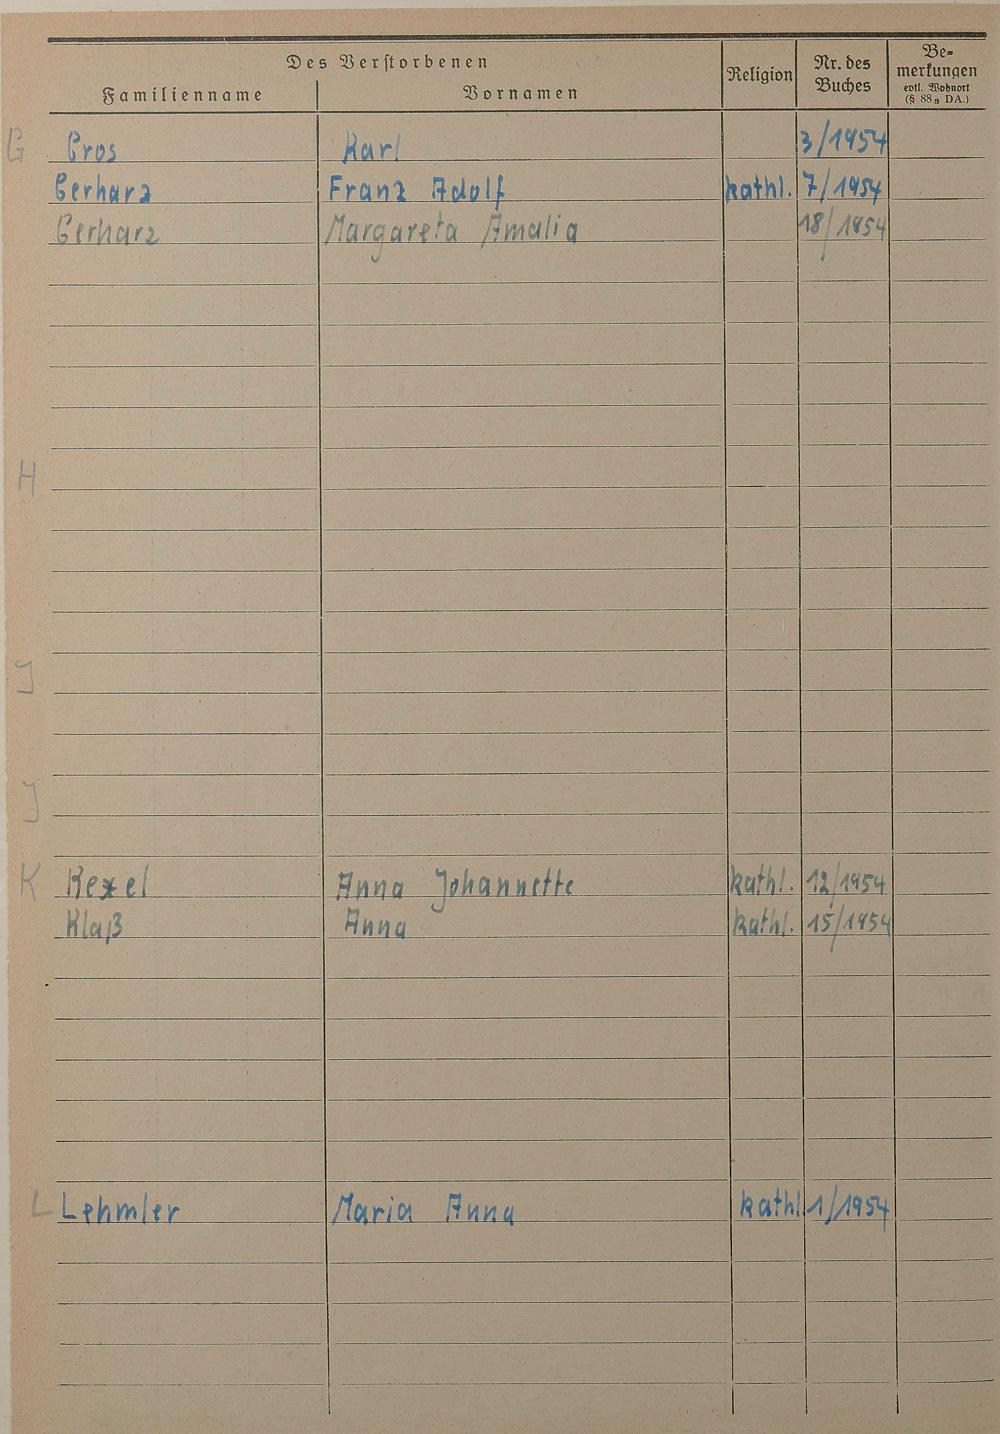 Des Verstorbenen
Familienname Vornamen Religion Nr. des Buches Bemerkungen evtl. Wohnort (§ 88a DA.)
G Gros Karl 3/1954
Gerharz Franz Adolf kathl. 7/1954
Gerharz Margareta Amalia 18/1954
H
J
J
K Kexel Anna Johannette kathl. 12/1954
Klaß Anna kathl. 15/1954
L Lehmler Maria Anna kathl 1/1954